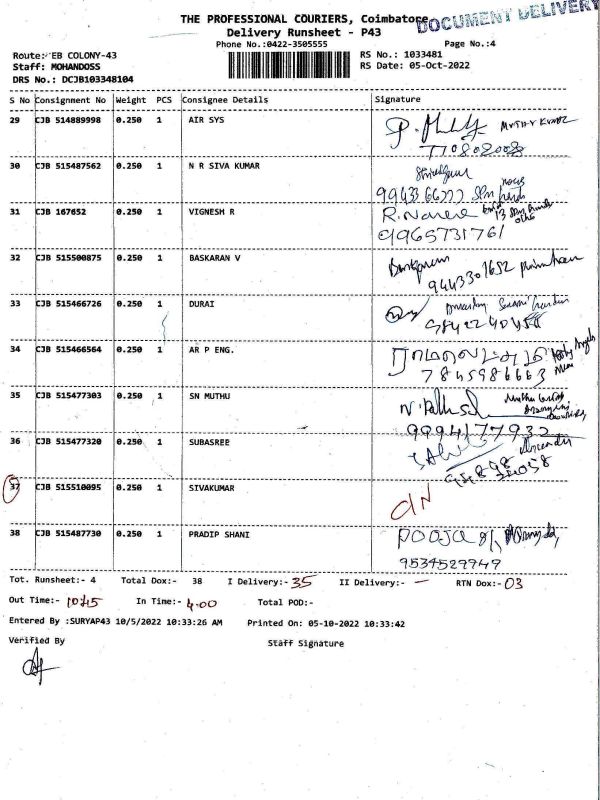 THE PROFESSIONAL COURIERS, Coimbatore
DOCUMENT DELIVERY
Delivery Runsheet - P43
Phone No.:0422-3505555
Page No.:4
Route: EB COLONY-43
RS No.: 1033481
Staff: MOHANDOSS
RS Date: 05-Oct-2022
DRS No.: DCJB103348104
S No Consignment No Weight PCS Consignee Details Signature
29 CJB 514889998 0.250 1 AIR SYS
30 CJB 515487562 0.250 1 N R SIVA KUMAR
31 CJB 167652 0.250 1 VIGNESH R
9965731761
32 CJB 515500875 0.250 1 BASKARAN V
9443301652
33 CJB 515466726 0.250 1 DURAI
34 CJB 515466564 0.250 1 AR P ENG.
7845986663
35 CJB 515477303 0.250 1 SN MUTHU
9094177932
36 CJB 515477320 0.250 1 SUBASREE
37 CJB 515510095 0.250 1 SIVAKUMAR
38 CJB 515487730 0.250 1 PRADIP SHANI
POOJA
9534529949
Tot. Runsheet:- 4 Total Dox:- 38 I Delivery:- 35 II Delivery:- — RTN Dox:- 03
Out Time:- 10:45 In Time:- 4.00 Total POD:-
Entered By :SURYAP43 10/5/2022 10:33:26 AM Printed On: 05-10-2022 10:33:42
Verified By Staff Signature